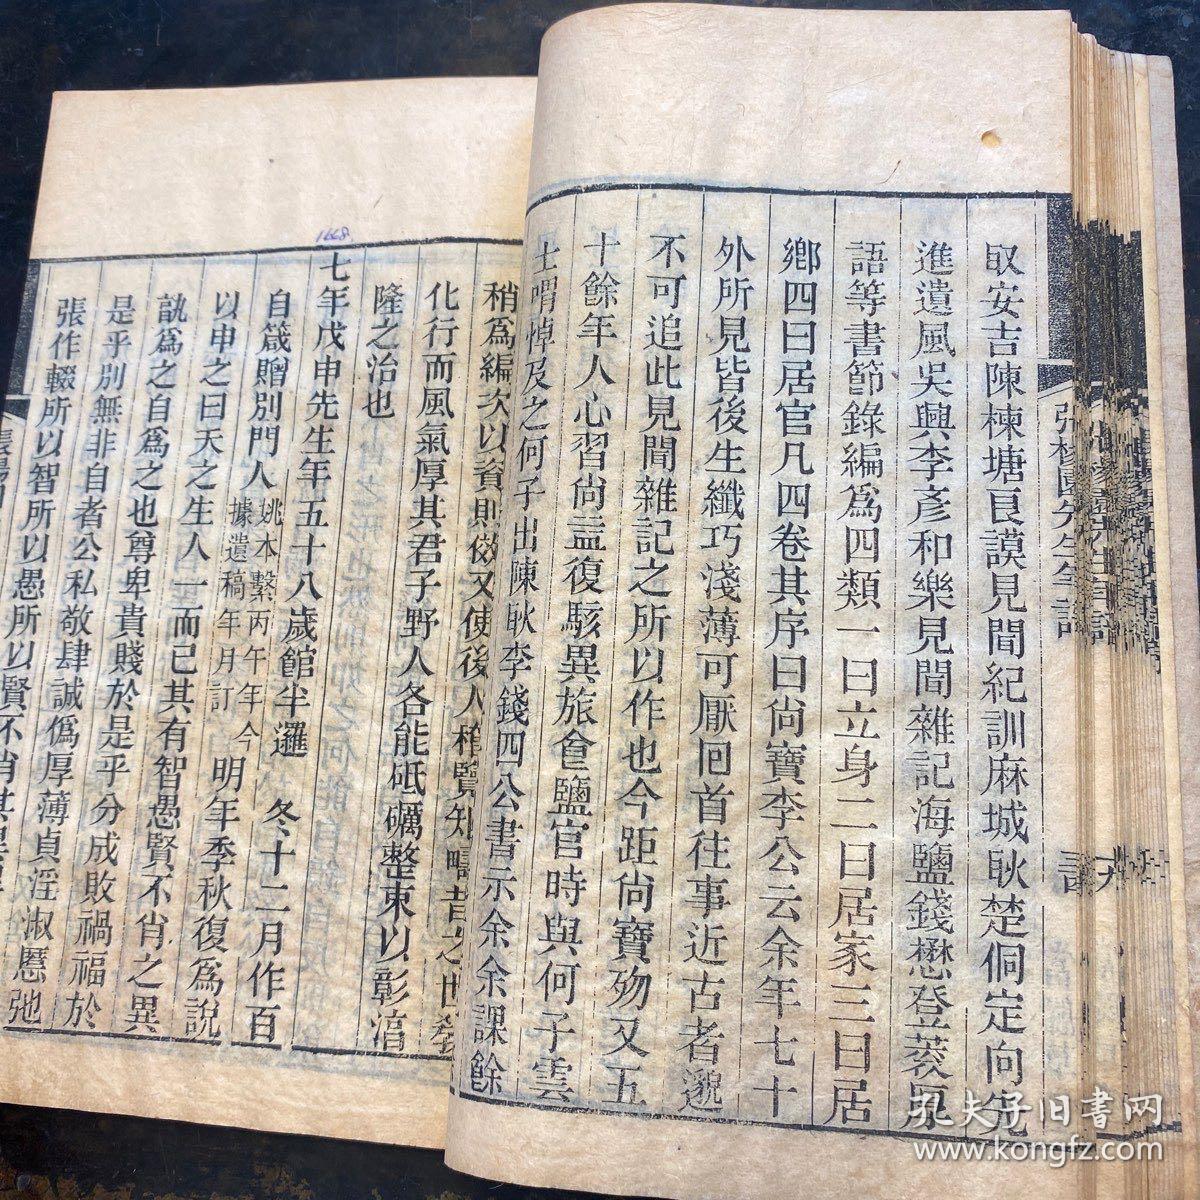 取安吉陳棟塘良謨見聞紀訓麻城耿楚侗定向先
進遺風吳興李彥和樂見聞雜記海鹽錢懋登蓘厚
語等書節錄編爲四類一曰立身二曰居家三曰居
鄉四曰居官凡四卷其序曰尚寶李公云余年七十
外所見皆後生纖巧淺薄可厭回首往事近古者邈
不可追此見聞雜記之所以作也今距尚寶歿又五
十餘年人心習尚益復駭異旅食鹽官時與何子雲
士喟悼及之何子出陳耿李錢四公書示余余課餘
稍爲編次以資則傚又使後人稚覽知疇昔之世教
化行而風氣厚其君子野人各能砥礪整束以彰淯
隆之治也
七年戊申先生年五十八歲館半邏
自箴贈別門人 姚本繫丙午年今據遺稿年月訂 冬十二月作百
以申之曰天之生人一而已其有智愚賢不肖之異 明年季秋復爲說
孰爲之自爲之也尊卑貴賤於是乎分成敗禍福於
是乎別無非自者公私敬肆誠僞厚薄貞淫淑慝弛
張作輟所以智所以愚所以賢不肖其
張楊園先生年譜
1668
孔夫子旧书网
www.kongfz.com